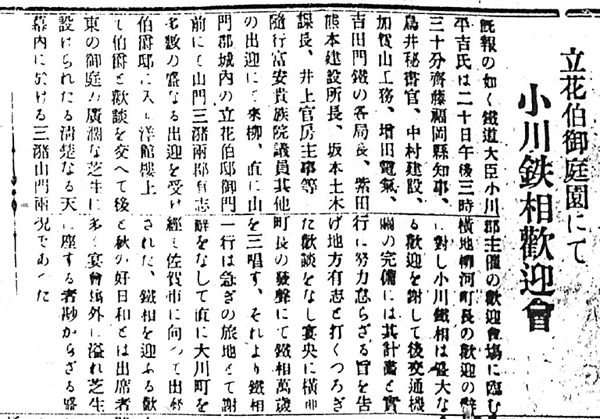 立花伯御庭園にて
小川鉄相歡迎會
既報の如く鐵道大臣小川
平吉氏は二十日午後三時
三十分齋藤福岡縣知事、
鳥井秘書官、中村建設、
加賀山工務、増田電氣、
吉田門鐵の各局長、紫田
熊本建設所長、坂本土木
課長、井上官房主事等
隨行富安貴族院議員其他
の出迎にて來柳、直に山
門郡城内の立花伯邸御門
前にて山門三潴兩郡有志
多數の盛なる出迎を受け
伯爵邸に入り洋館樓上
て伯爵と歡談を交へて後
東の御庭の廣濶な芝生に
設けられたる清楚なる天
幕内に於ける三潴山門兩
郡主催の歡迎會場に臨む
横地柳河町長の歡迎の辭
に對し小川鐵相は盛大な
る歡迎を謝して後交通機
關の完備には其計畫と實
行に努力怠らざる旨を告
げ地方有志と打くつろぎ
た歡談をなし宴央に横地
町長の發聲にて鐵相萬歳
を三唱す、それより鐵相
一行は急ぎの旅地とて謝
辭をなして直に大川町を
經て佐賀市に向つて出發
された、鐵相を迎ふる歡
と秋の好日和とは出席者
多く宴會場外に溢れ芝生
に座する者尠からざる盛
況であつた